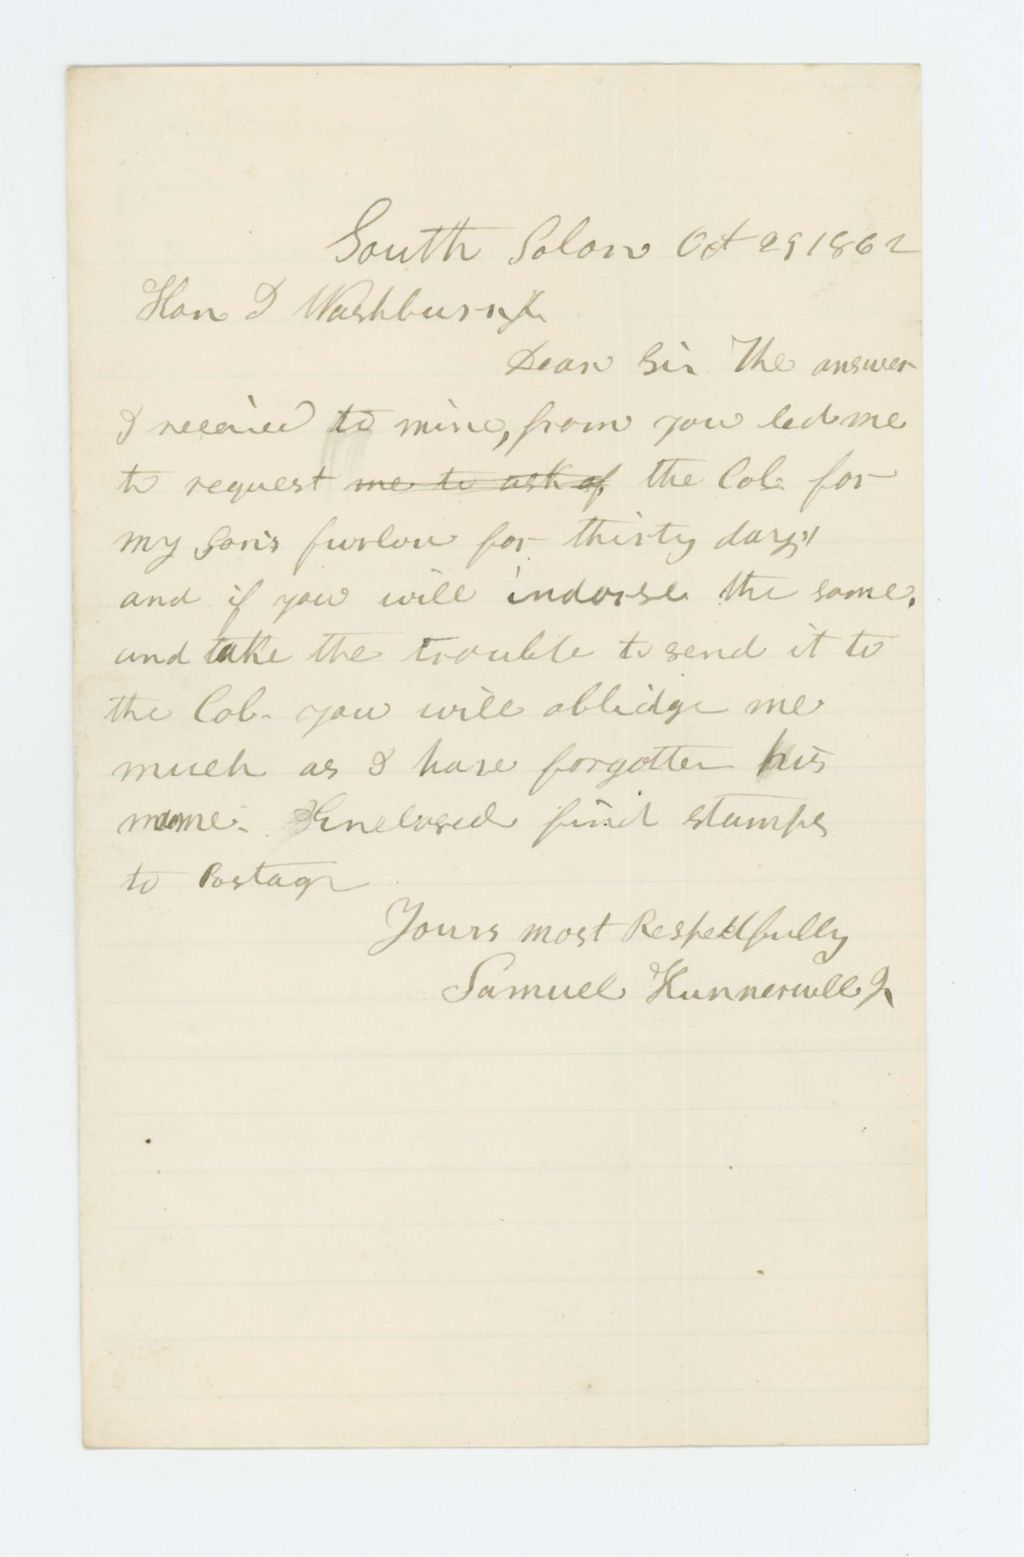 South Solon Oct 29 1862
Hon I Washburn Jr
Dear Sir The answer
I received to mine, from you led me
to request me to ask of the Col. for
my son's furlow for thirty days
and if you will indorse the same,
and take the trouble to send it to
the Col. you will oblidge me
much as I have forgotten his
name. Enclosed find stamps
to Postage
Yours most Respectfully
Samuel Hunnewell Jr